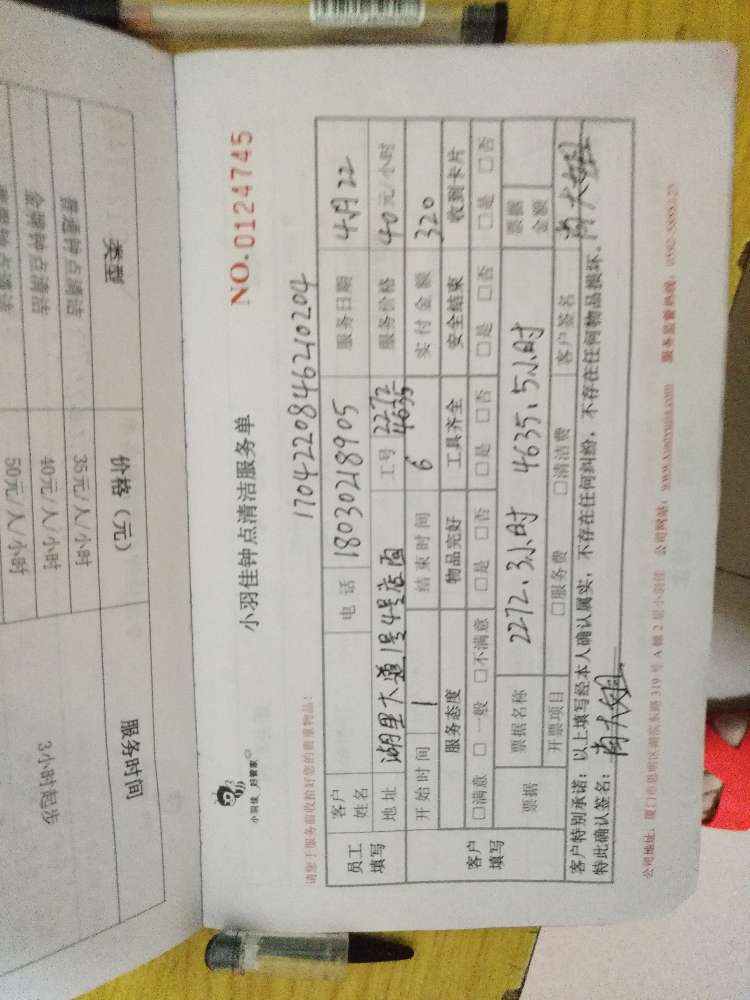 类型
价格（元）
服务时间
普通钟点清洁
35元/人/小时
金牌钟点清洁
40元/人/小时
3小时起步
50元/人/小时
小羽佳 好管家
小羽佳钟点清洁服务单
NO.0124745
请您于服务前收拾好您的贵重物品！
1704220846210204
员工填写
客户姓名
电话
18030218905
服务日期
4月22
地址
湖里大道1号4号店面
工号
2272
4635
服务价格
40元/小时
开始时间
1
结束时间
6
实付金额
320
客户填写
服务态度
物品完好
工具齐全
安全结束
收到卡片
□满意 □一般 □不满意
□是 □否
□是 □否
□是 □否
□是 □否
票据
票据名称
2272.3小时 4635.5小时
票据金额
开票项目
□服务费
□清洁费
客户签名
客户特别承诺：以上填写经本人确认属实，不存在任何纠纷，不存在任何物品损坏。
特此确认签名：
公司地址：厦门市思明区湖滨东路319号A幢2层小羽佳
公司网站：www.xiaoyujia.com
服务监督热线：0592-5888123